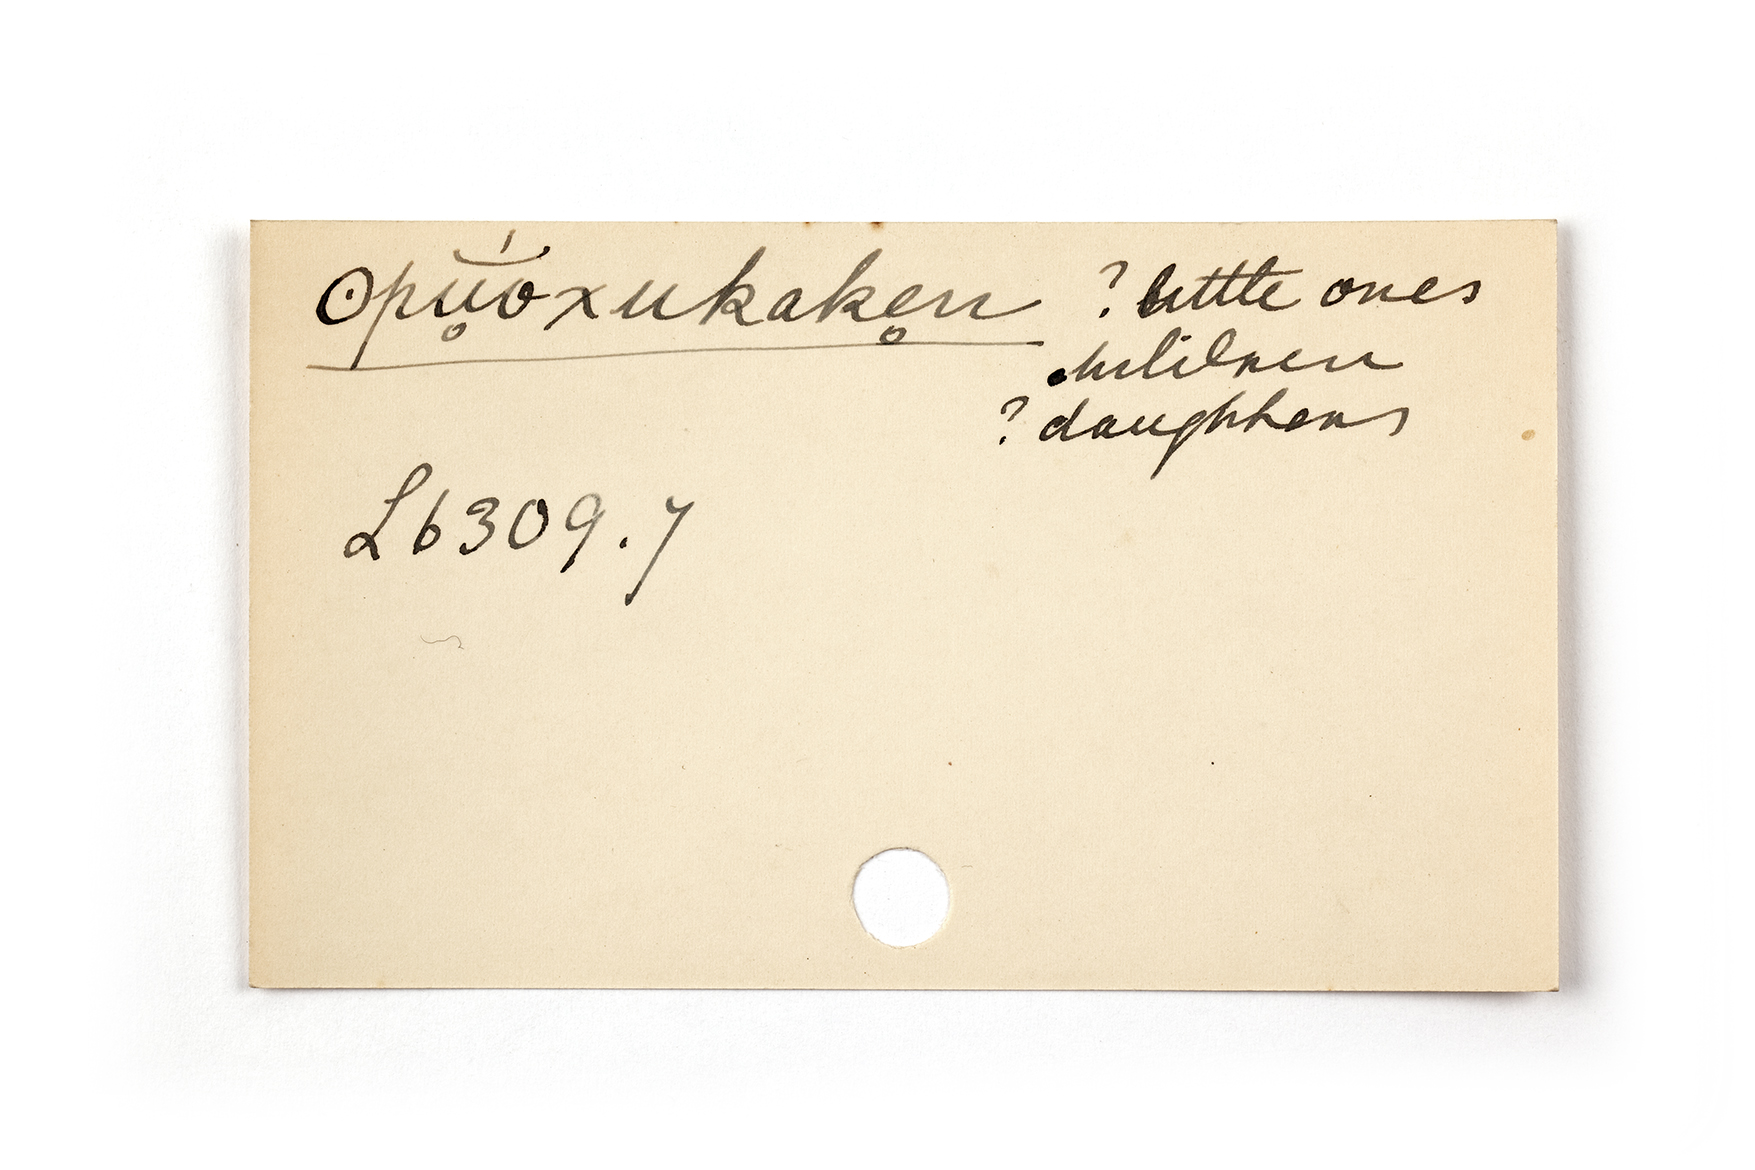 ʘpu̥͝óxukake̥n ? little ones
children
? daughters
L6309.7